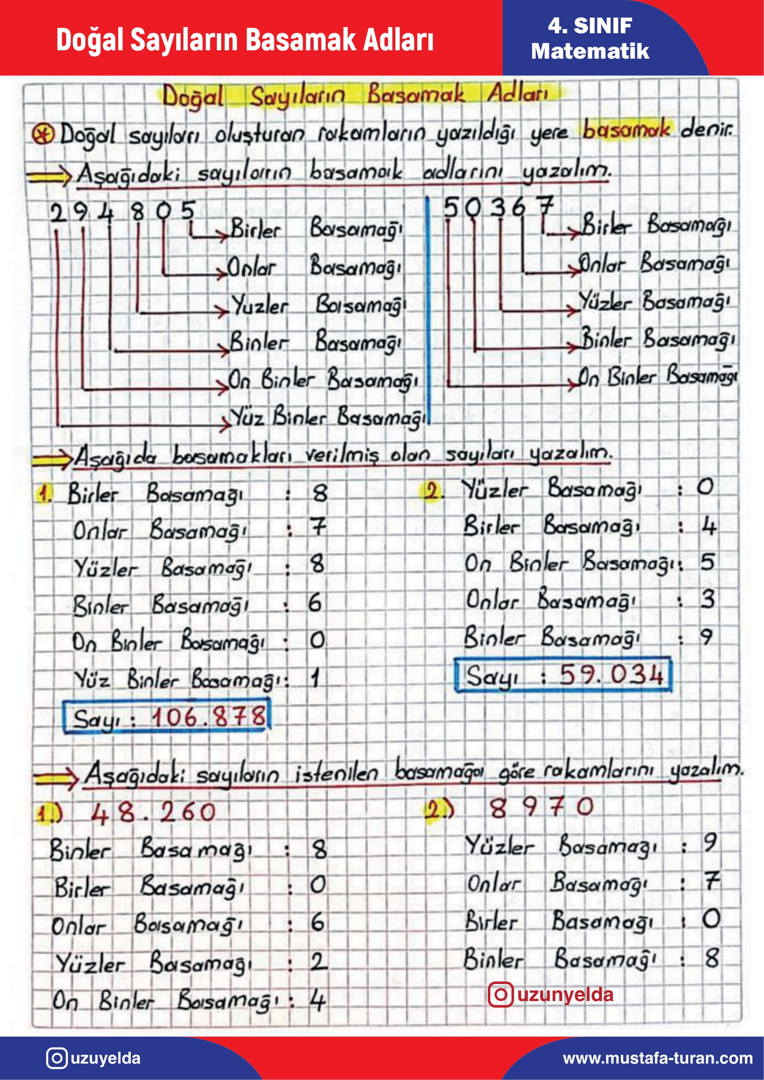 Doğal Sayıların Basamak Adları
4. SINIF
Matematik
Doğal Sayıların Basamak Adları
Doğal sayıları oluşturan rakamların yazıldığı yere basamak denir.
Aşağıdaki sayıların basamak adlarını yazalım.
294805
Birler Basamağı
Onlar Basamağı
Yuzler Basamağı
Binler Basamağı
On Binler Basamağı
Yüz Binler Basamağı
50367
Birler Basamağı
Onlar Basamağı
Yüzler Basamağı
Binler Basamağı
On Binler Basamağı
Aşağıda basamakları verilmiş olan sayıları yazalım.
1. Birler Basamağı : 8
Onlar Basamağı : 7
Yüzler Basamağı : 8
Binler Basamağı : 6
On Binler Basamağı : 0
Yüz Binler Basamağı : 1
Sayı : 106.878
2. Yüzler Basamağı : 0
Birler Basamağı : 4
On Binler Basamağı : 5
Onlar Basamağı : 3
Binler Basamağı : 9
Sayı : 59.034
Aşağıdaki sayıların istenilen basamağa göre rakamlarını yazalım.
1.) 48.260
Binler Basamağı : 8
Birler Basamağı : 0
Onlar Basamağı : 6
Yüzler Basamağı : 2
On Binler Basamağı : 4
2.) 8970
Yüzler Basamağı : 9
Onlar Basamağı : 7
Birler Basamağı : 0
Binler Basamağı : 8
uzunyelda
uzuyelda
www.mustafa-turan.com